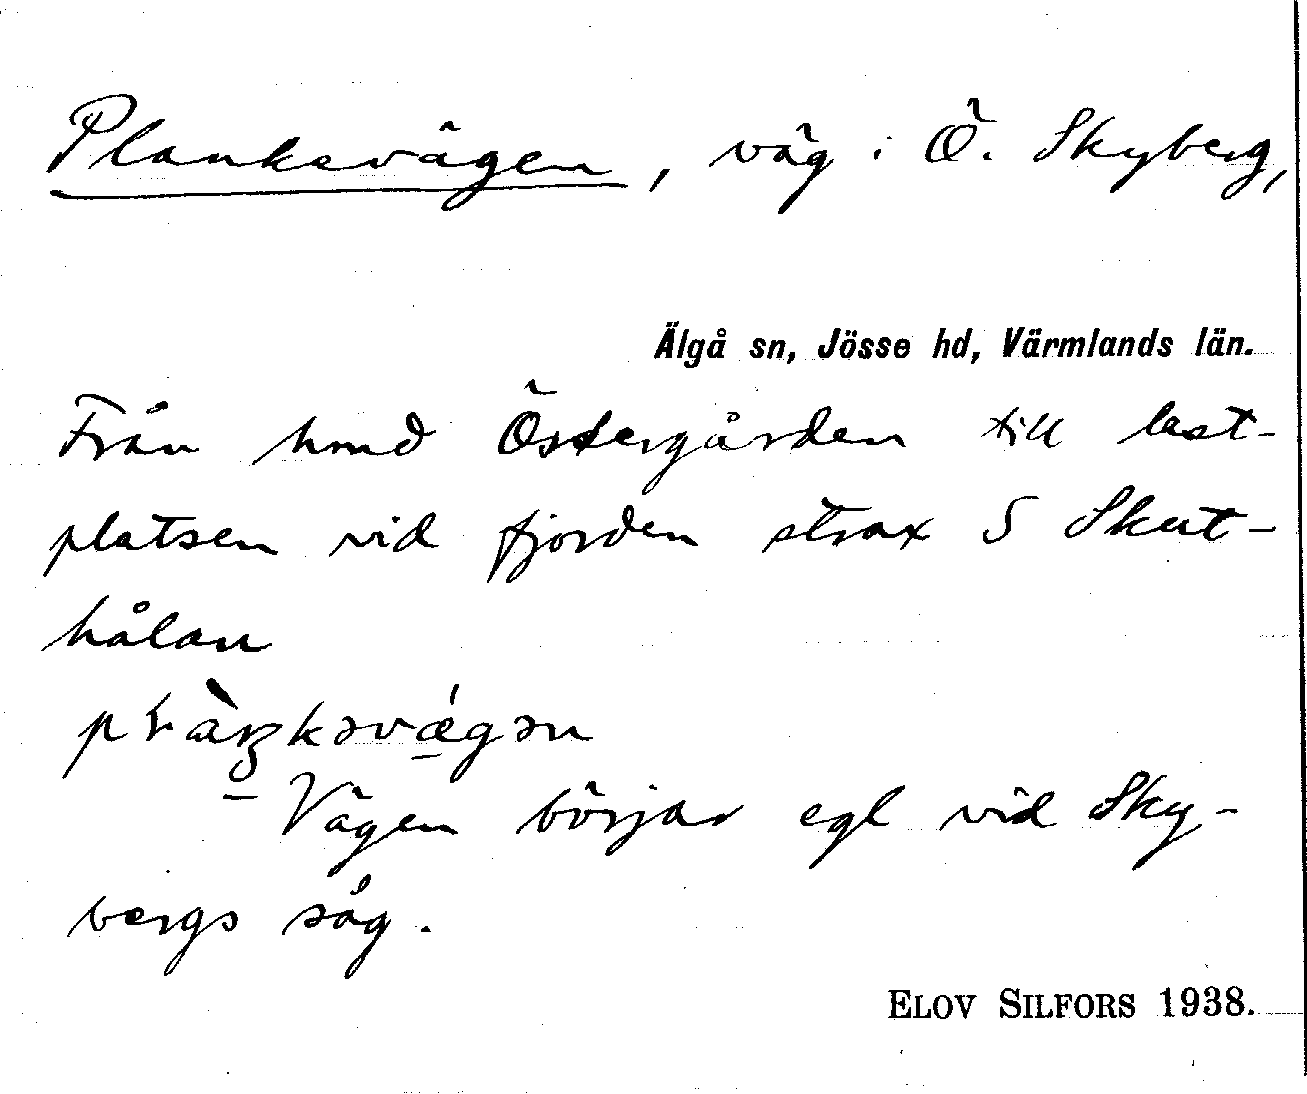 Plankevägen, väg i Ö. Skyberg,
Älgå sn, Jösse hd, Värmlands län.
Från hmd Östergården till last-
platsen vid fjorden strax S Skut-
hålan
Vägen börjar egl vid Sky-
bergs såg.
ELOV SILFORS 1938.